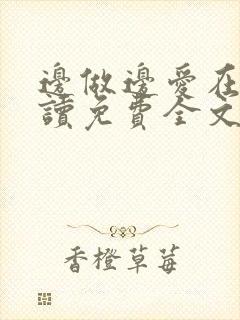 邊做邊愛在
讀免費全文
香橙草莓